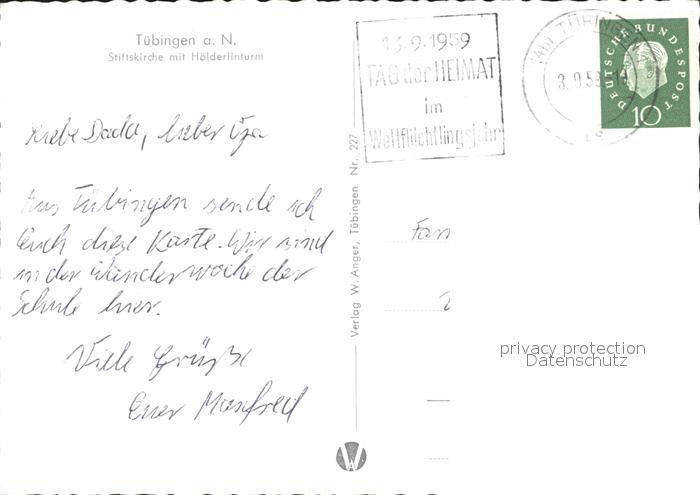 Tübingen a. N.
Stiftskirche mit Hölderlinturm
13.9.1959
TAG der HEIMAT
im
Weltflüchtlingsjahr
TÜBINGEN
3.9.59
DEUTSCHE BUNDESPOST
10
Liebe Dada, lieber Opa
Aus Tübingen sende ich
Euch diese Karte. Wir sind
in der Wanderwoche der
Schule hier.
Viele Grüße
Euer Manfred
Verlag W. Anger, Tübingen Nr. 227
Fam
W
privacy protection
Datenschutz